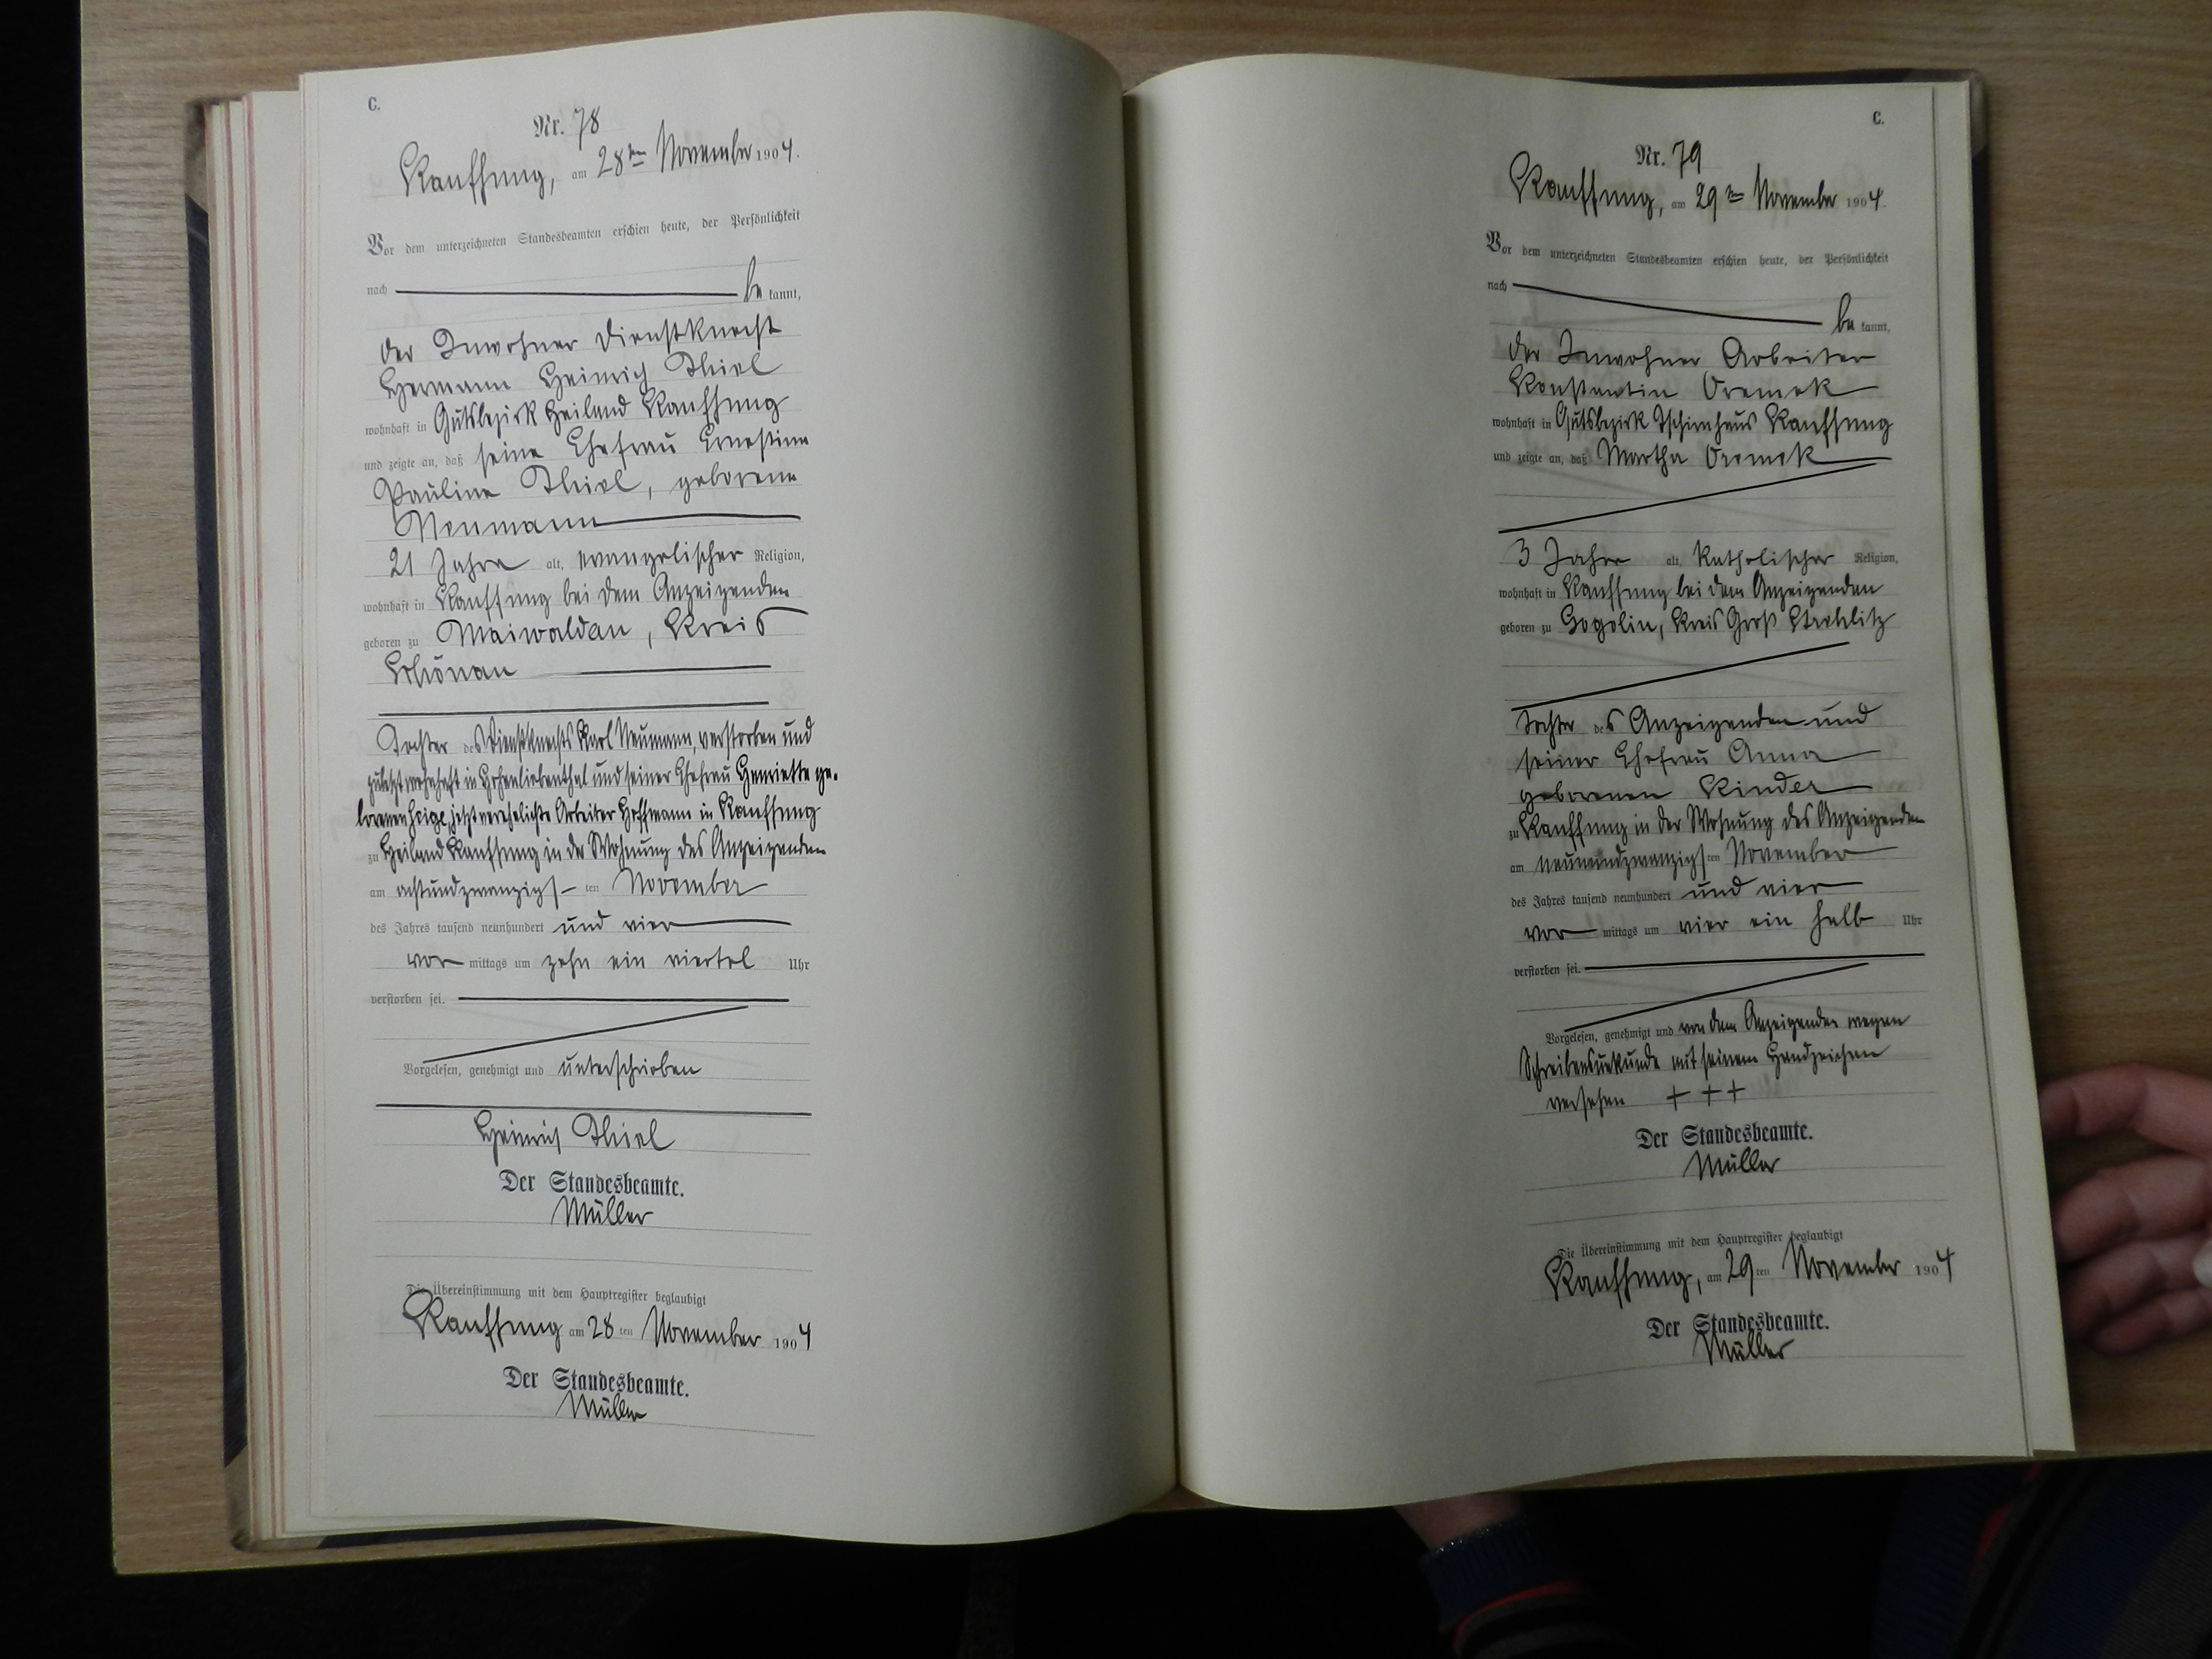 C.
Nr. 78
Kauffung, am 28ten November 1904.
Vor dem unterzeichneten Standesbeamten erschien heute, der Persönlichkeit
nach be kannt,
der Inwohner Dienstknecht
Hermann Heinrich Thiel
wohnhaft in Gutsbezirk Heiland Kauffung
und zeigte an, daß seine Ehefrau Ernestine
Pauline Thiel, geborene
Neumann
21 Jahre alt, evangelischer Religion,
wohnhaft in Kauffung bei dem Anzeigenden
geboren zu Maiwaldau, Kreis
Schönau
Tochter des Dienstknechts Karl Neumann, verstorben und
zuletzt wohnhaft in Hohenliebenthal und seiner Ehefrau Henriette ge-
borenen jetzt verehelichte Arbeiter Hoffmann in Kauffung
zu Heiland Kauffung in der Wohnung des Anzeigenden
am achtundzwanzigs ten November
des Jahres tausend neunhundert und vier
vor mittags um zehn ein viertel Uhr
verstorben sei.
Vorgelesen, genehmigt und unterschrieben
Heinrich Thiel
Der Standesbeamte.
Müller
Die Übereinstimmung mit dem Hauptregister beglaubigt
Kauffung am 28 ten November 1904
Der Standesbeamte.
Müller
C.
Nr. 79
Kauffung, am 29ten November 1904.
Vor dem unterzeichneten Standesbeamten erschien heute, der Persönlichkeit
nach be kannt,
der Inwohner Arbeiter
Konstantin
wohnhaft in Gutsbezirk Tschirnhaus Kauffung
und zeigte an, daß Martha
3 Jahre alt, katholischer Religion,
wohnhaft in Kauffung bei dem Anzeigenden
geboren zu Gogolin, Kreis Groß Strehlitz
Tochter des Anzeigenden und
seiner Ehefrau Anna
geborenen Kinder
zu Kauffung in der Wohnung des Anzeigenden
am neunundzwanzigs ten November
des Jahres tausend neunhundert und vier
vor mittags um vier ein halb Uhr
verstorben sei.
Vorgelesen, genehmigt und von dem Anzeigenden wegen
Schreibensunkunde mit seinem Handzeichen
versehen + + +
Der Standesbeamte.
Müller
Die Übereinstimmung mit dem Hauptregister beglaubigt
Kauffung, am 29 ten November 1904
Der Standesbeamte.
Müller